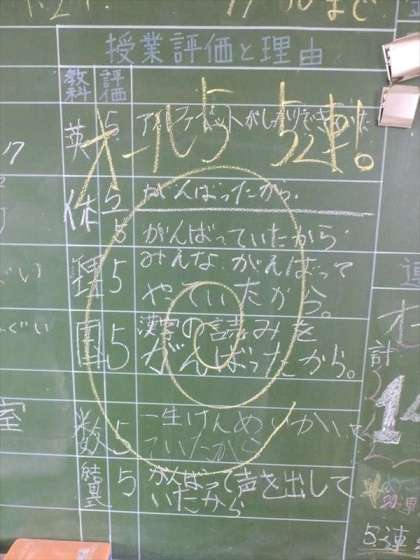 まで。
授業評価と理由
教科 評価
オール5 5連!
英 5 アルファベットがしっかりできていた
体 5 がんばったから。
5 がんばっていたから
理 5 みんながんばって
やっていたから。
国 5 漢字の読みを
がんばったから。
数 5 一生けんめいかいて
いたから
5 がんばって声を出して
いたから
計
5連